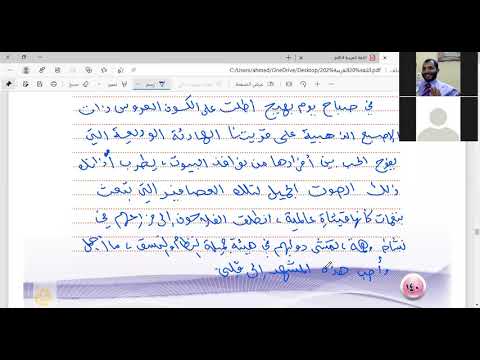 اللغة العربية 202.pdf
C:/Users/ahmed/OneDrive/Desktop/202%20اللغة%20العربية.pdf
في صباح يوم بهيج أطلت على الكون العروس ذات
الاصبع الذهبية على قريتنا الهادئة الوديعة التي
يفوح الحب بين أفرادها من نوافذ البيوت، يطرب أذانك
ذلك الصوت الجميل لتلك العصافير التي تبعث
بنغمات كأنها قيثارة عالمية، انطلقت الفلاحون إلى مزارعهم في
نشاط وهمة، تمشي دوابهم في هيئة جميلة بنظام ونسق، ما أجمل
وأحب هذه المشهد إلى قلبي
١٤٠